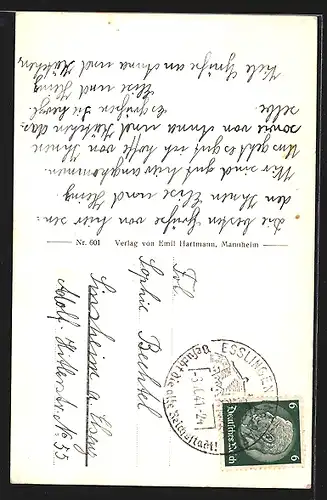 Die besten Grüße von hier sen:
den Ihnen Elise und Heinz
Wir sind gut hier angekommen.
Uns geht es gut ich hoffe von Ihnen
sowie von Anna und Käthchen das:
selbe.
Es grüßen Sie herzl.
Elise und Heinz
Viele Grüße an Anna und Käthchen
Nr. 601 Verlag von Emil Hartmann, Mannheim
Frl.
Sophie Bechtel
Sinsheim a. Elsenz
Adolf-Hitlerstr. No 55
ESSLINGEN
Besucht die alte Reichsstadt!
Deutsches Reich
6
6